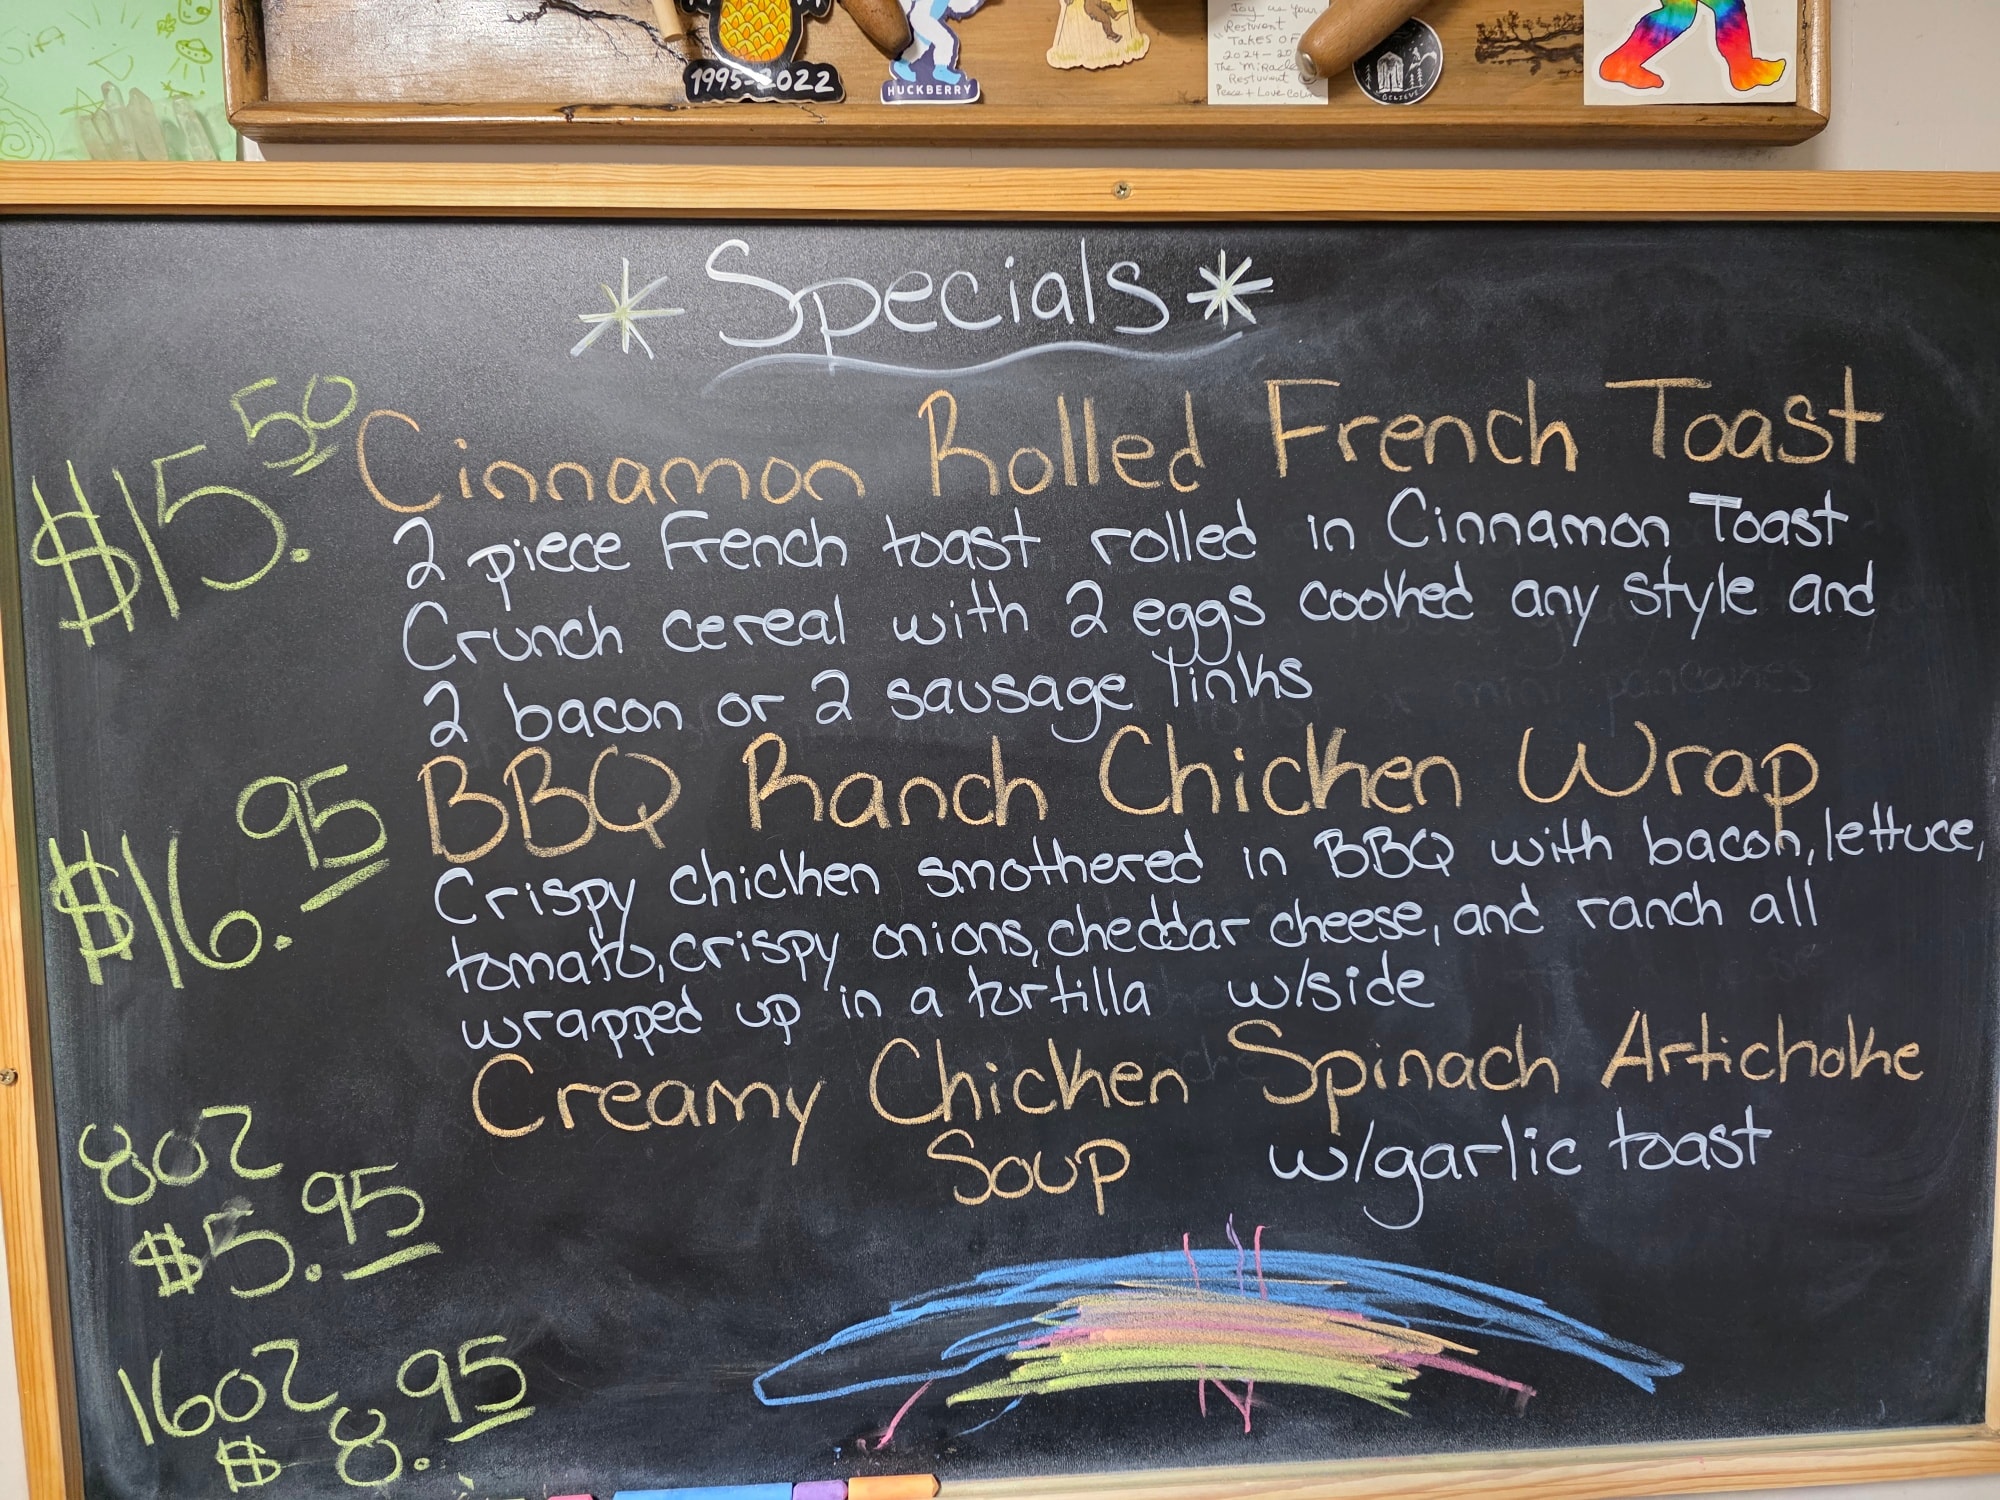 1995-2022
HUCKBERRY
Joy us your
Resturant
"Takes OF
2024-20
The Miracle
Resturant
Peace + Love Colin
BELIEVE
* Specials *
$15.50 Cinnamon Rolled French Toast
2 piece French toast rolled in Cinnamon Toast
Crunch cereal with 2 eggs cooked any style and
2 bacon or 2 sausage links
$16.95 BBQ Ranch Chicken Wrap
Crispy chicken smothered in BBQ with bacon, lettuce,
tomato, crispy onions, cheddar cheese, and ranch all
wrapped up in a tortilla w/side
Creamy Chicken Spinach Artichoke
Soup w/garlic toast
8oz
$5.95
16oz
$8.95